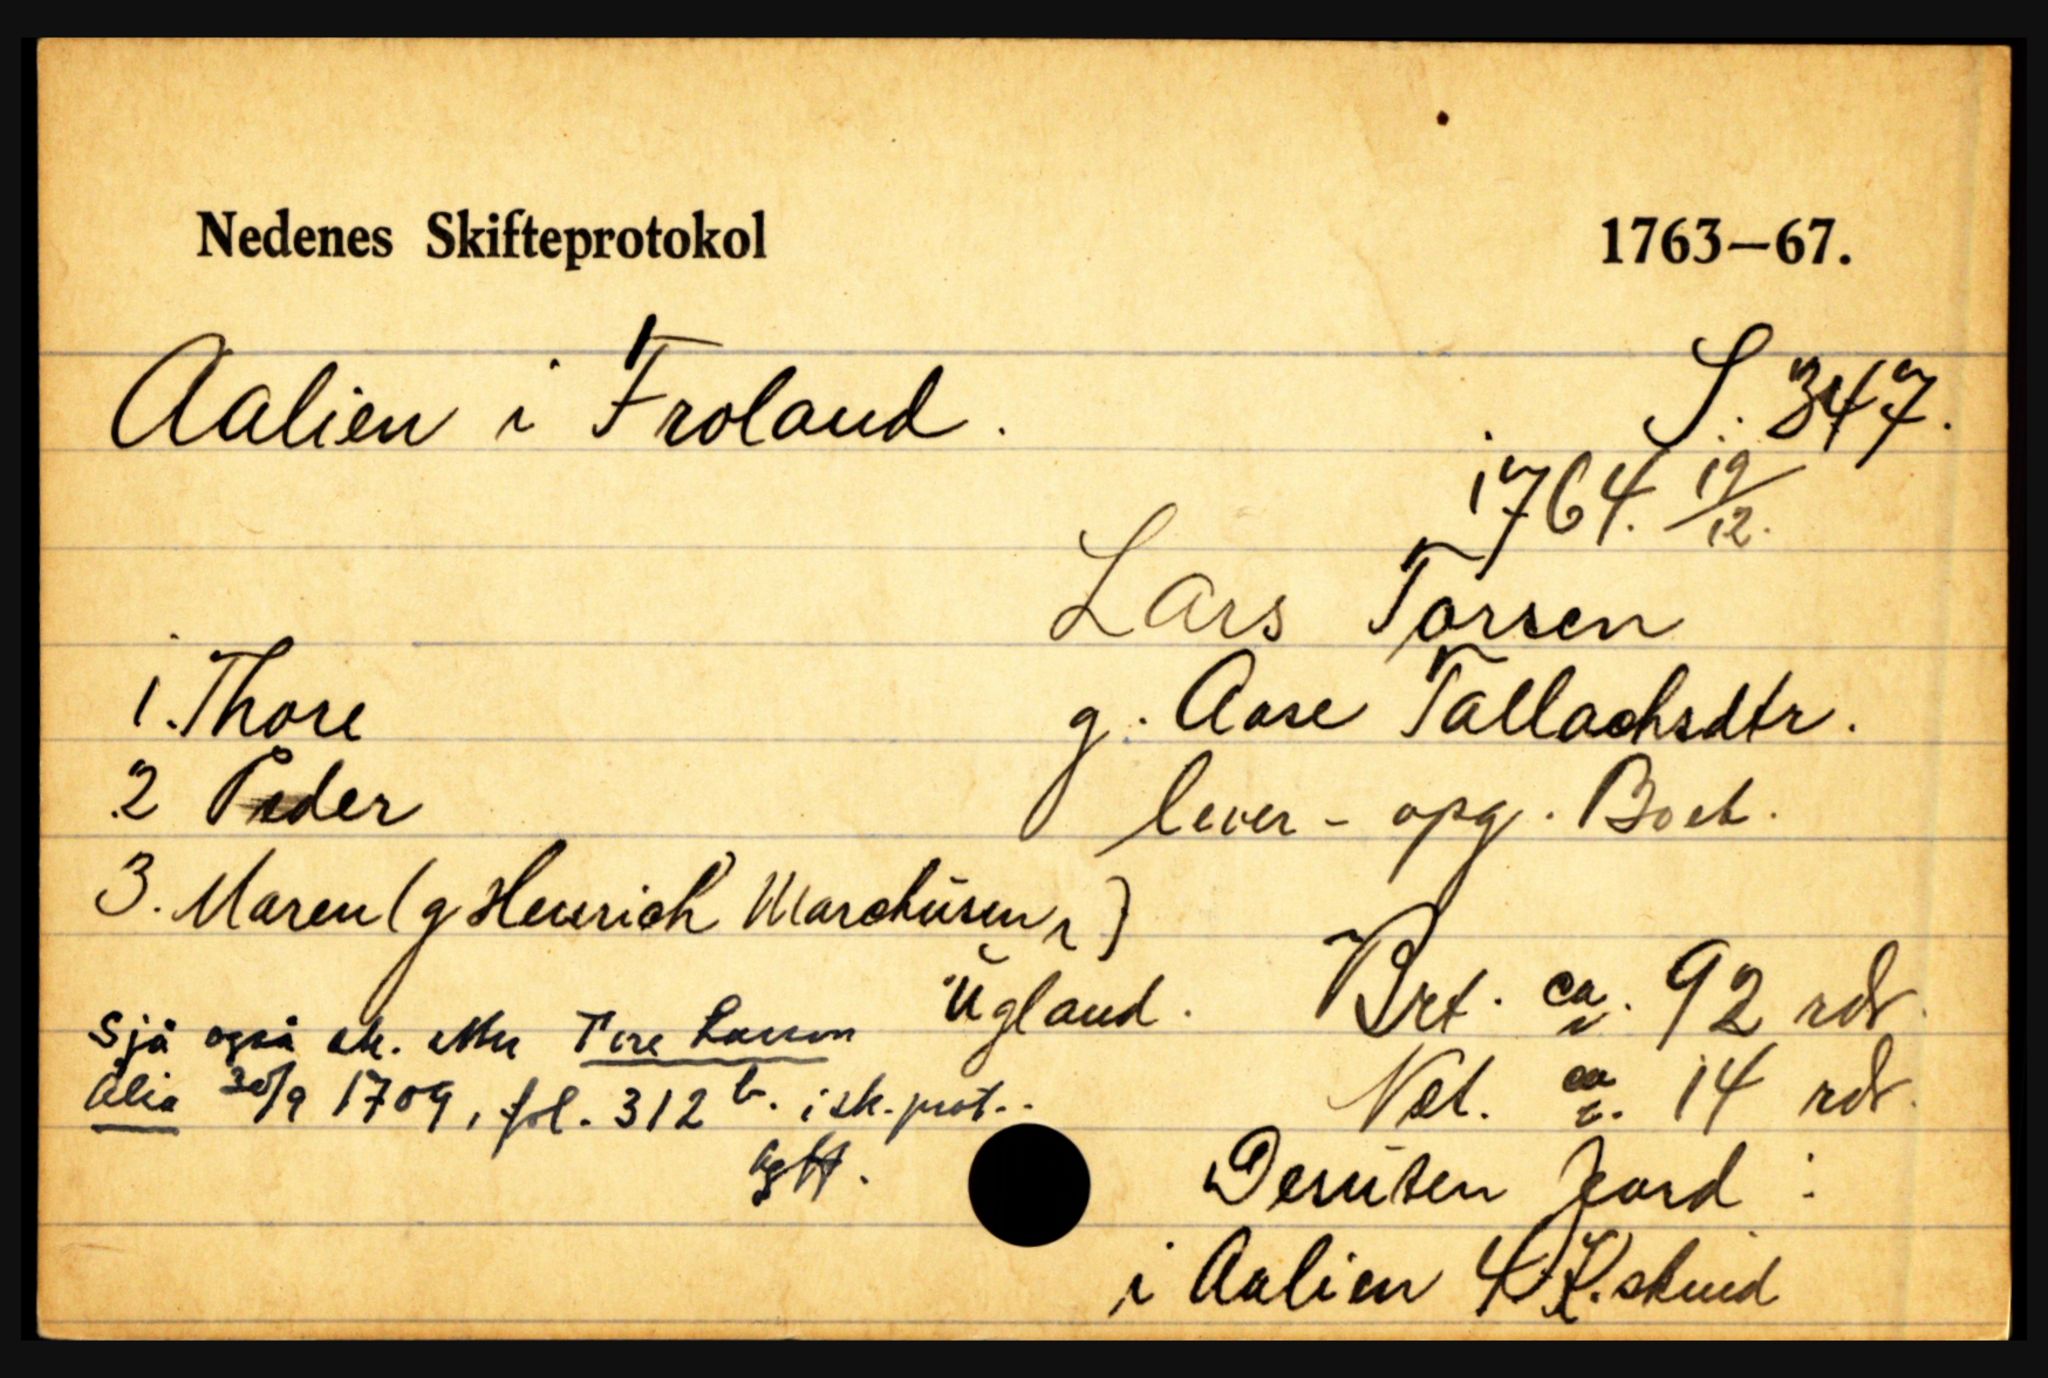 Nedenes Skifteprotokol 1763—67.
Aalien i Froland. S. 347.
1764. 19/12.
Lars Torsen
1. Thore g. Aase Tallachsdtr.
2 Peder lever - opg. Boet.
3. Maren (g Henrich Marchüsen,)
Ügland. Brt. ca. 92 rdr.
Sjå også sk. etter Tore Larsson
Net. ca. 14 rdr.
Ålia 30/9 1709, fol. 312 b. i sk. prot..
Desüten Jord :
i Aalien 4 K. skind